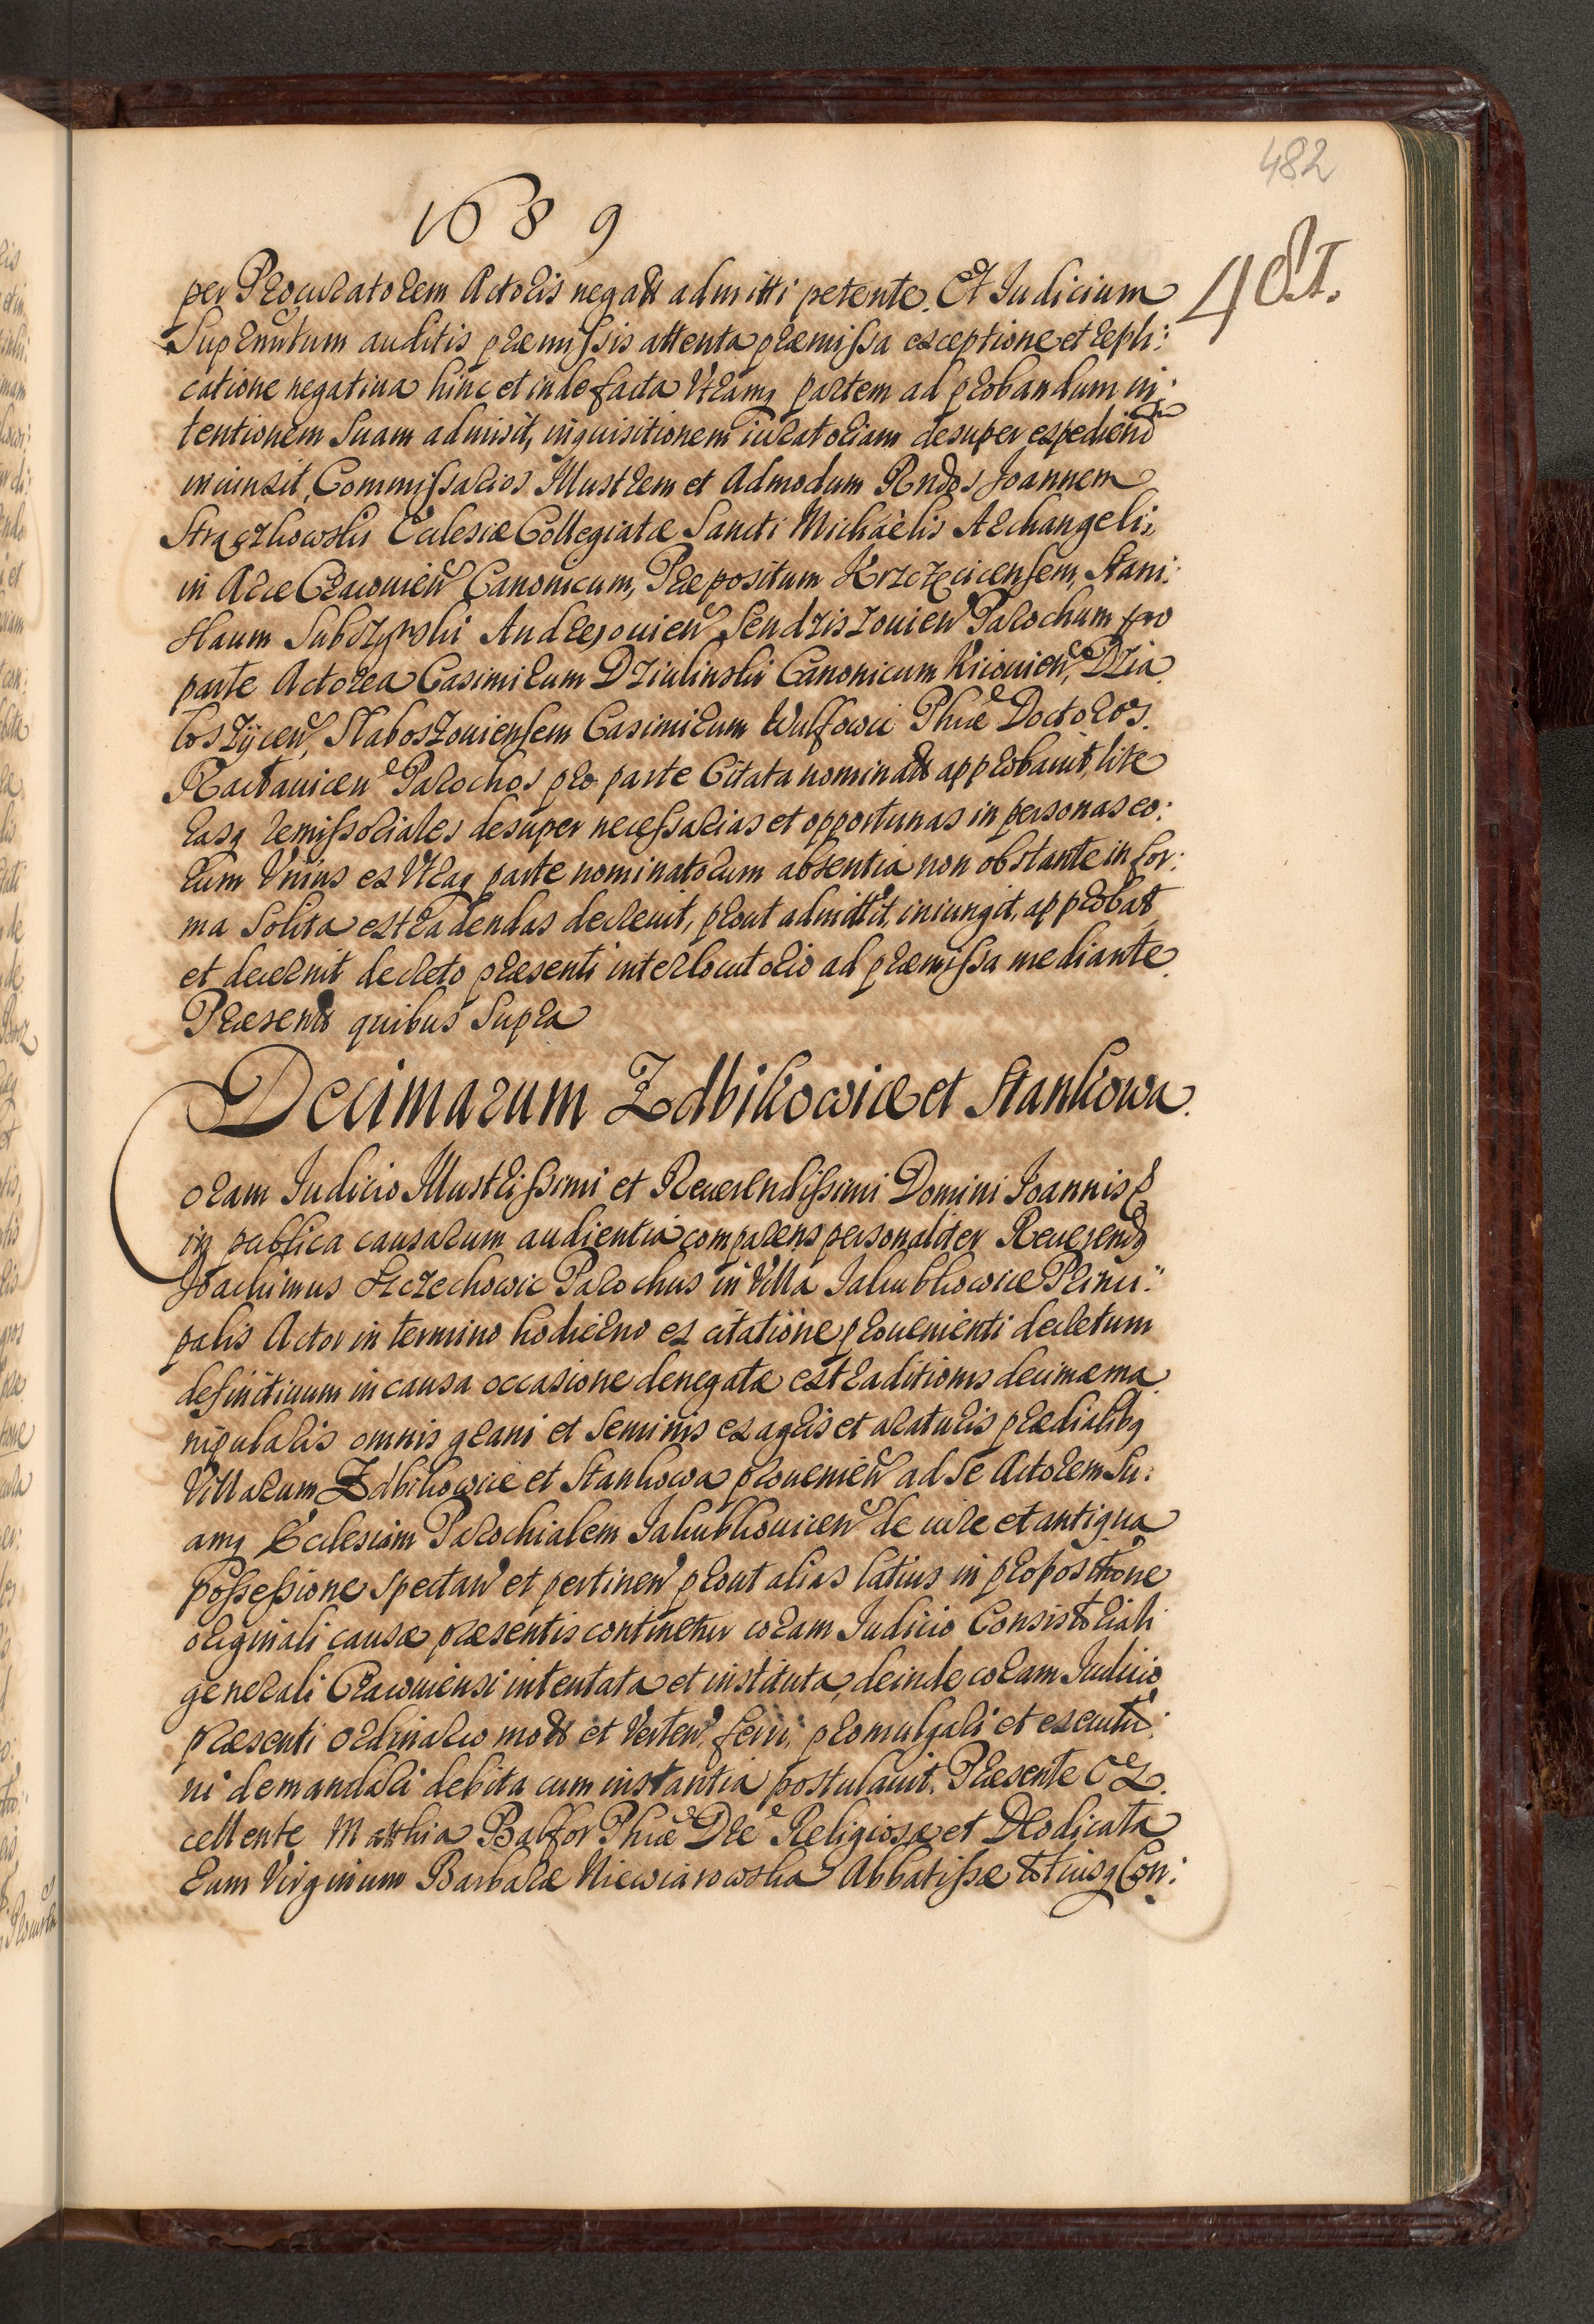 482
1689
481.
per Procuratorem Actoris negatt admitti petente. Et Iudicium
Suprantum auditis præmissis attenta præmissa exceptione et repli:
catione negatiua hinc et inde facta Utramq partem ad probandum in:
tentionem Suam admisit, inquisitionem iuratoriam desuper expediend
iniunxit, Commissarios Illustrem et Admodum Rndos Joannem
Straczkowski Eclesiæ Collegiatæ Sancti Michaëlis Archangeli,
in Arce Cracouien Canonicum, Præpositum Krzczęcicensem, Stani:
slaum Andreiouien Sendziszouien Parochum pro
parte Actorea Casimirum Dziulinski Canonicum Kiiouien, Dzia
loszÿcen, Slaboszouiensem Casimirum Wulfowic Phiæ Doctores
Ractauicen Parochos pro parte Citata nominatt approbauit, lite
rasq remissoriales desuper necessarias et opportunas in personas eo:
rum Unius ex Utraq parte nominatorum absentia non obstante in for:
ma Solita extradendas decreuit, prout admittit, iniungit, approbat
et decernit decreto præsenti interlocutorio ad præmissa mediante
Præsentt quibus Supra
Decimarum Zdbikowicæ et Stankowa.
Coram Iudicio Illustrissimi et Reuerendissimi Domini Ioannis
in publica causarum audientia comparens personaliter Reuerendq
Joachimus Szczechowic Parochus in Villa Jakubkowice Princi:
palis Actor in termino hodierno ex citatione prouenienti decretum
definitiuum in causa occasione denegatæ extraditionis decimæ ma
nipularis omnis grani et Seminis ex agris et araturis prædialibq
Villarum Zdbikowice et Stankowa prouenien ad Se Actorem Su:
amq Ecclesiam Parochialem Jakubkouicen de iure et antiqua
possessione spectan et pertinen prout alias latius in propositione
originali causæ præsentis continetur coram Iudicio Consistoriali
generali Cracouiensi intentata et instituta, deinde coram Iudicio
præsenti ordinario mott et Verten, ferri, promulgari et executi:
ni demandari debita cum instantia postulauit. Præsente Ex
cellente Matthia Balfor Phiæ Dre Religiosæ et Deodicata
rum Virginum Barbaræ Niewiarowska Abbatissæ totiusq Con: